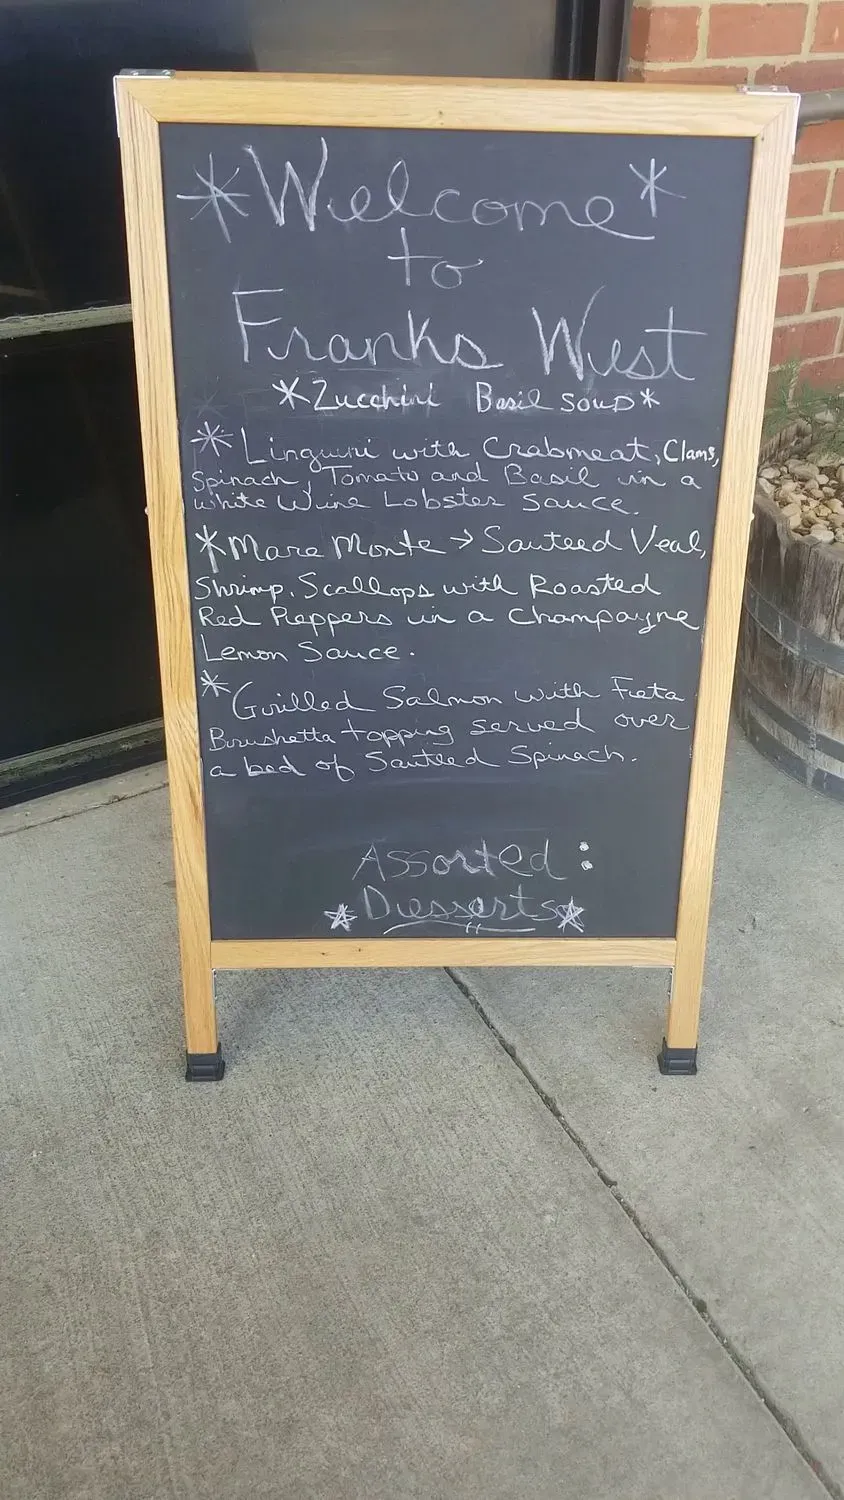 *Welcome*
to
Franks West
*Zucchini Basil soup*
* Linguini with Crabmeat, Clams,
Spinach, Tomato and Basil in a
white Wine Lobster Sauce.
*Mare Monte → Sauteed Veal,
Shrimp, Scallops with Roasted
Red Peppers in a Champagne
Lemon Sauce.
* Grilled Salmon with Feta
Brushetta topping served over
a bed of Sauteed Spinach.
Assorted :
* Desserts *